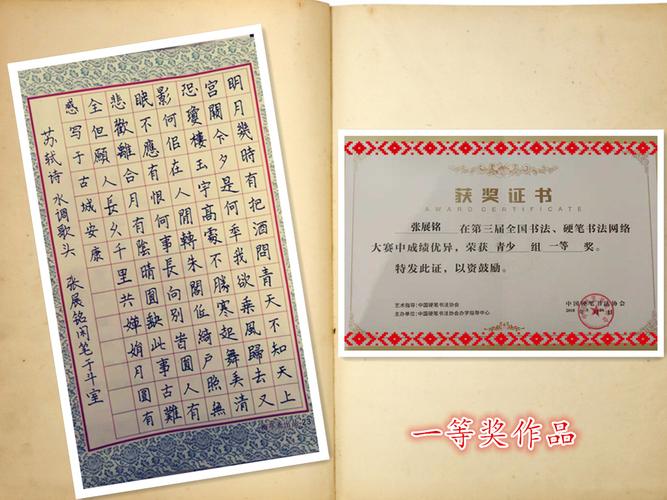 明月幾時有把酒問青天不知天上
宮闕今夕是何年我欲乘風歸去又
恐瓊樓玉宇高處不勝寒起舞弄清
影何侣在人間轉朱閣低綺戶照無
眠不應有恨何事長向别皆圓人有
悲歡離合月有陰晴圓缺此事古難
全但願人長久千里共嬋娟月圓有
感写于古城安康
苏轼诗 水调歌头 张展铭闲笔于斗室
获奖证书
AWARD CERTIFICATE
张展铭 在第三届全国书法、硬笔书法网络
大赛中成绩优异，荣获 青少 组 一等 奖。
特发此证，以资鼓励。
艺术指导：中国硬笔书法协会
主办单位：中国硬笔书法协会办学指导中心
中国硬笔书法协会
2018
一等奖作品